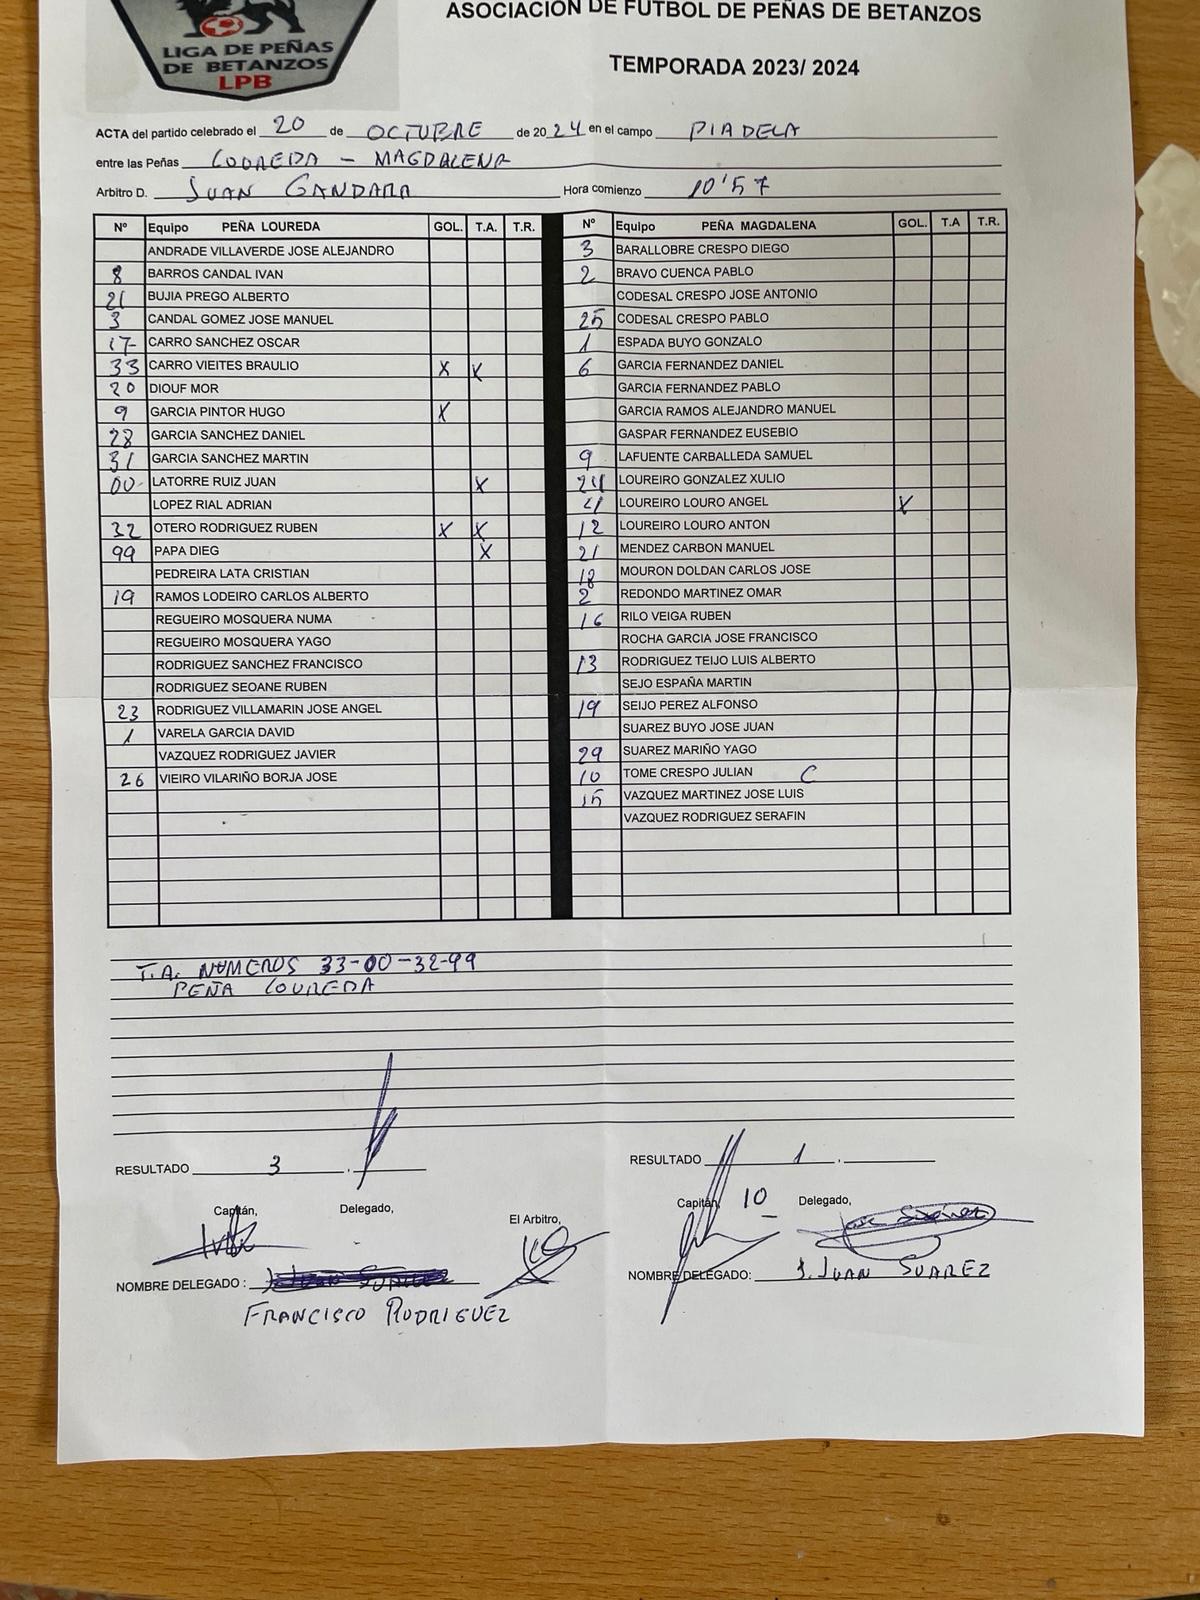 ASOCIACIÓN DE FUTBOL DE PEÑAS DE BETANZOS
LIGA DE PEÑAS
DE BETANZOS
LPB
TEMPORADA 2023/ 2024
ACTA del partido celebrado el 20 de OCTUBRE de 2024 en el campo PIADELA
entre las Peñas LOUREDA - MAGDALENA
Arbitro D. JUAN GANDARA Hora comienzo 10'57
Nº Equipo PEÑA LOUREDA GOL. T.A. T.R.
ANDRADE VILLAVERDE JOSE ALEJANDRO
8 BARROS CANDAL IVAN
21 BUJIA PREGO ALBERTO
3 CANDAL GOMEZ JOSE MANUEL
17 CARRO SANCHEZ OSCAR
33 CARRO VIEITES BRAULIO X X
20 DIOUF MOR
9 GARCIA PINTOR HUGO X
28 GARCIA SANCHEZ DANIEL
31 GARCIA SANCHEZ MARTIN
00 LATORRE RUIZ JUAN X
LOPEZ RIAL ADRIAN
32 OTERO RODRIGUEZ RUBEN X X
99 PAPA DIEG X
PEDREIRA LATA CRISTIAN
19 RAMOS LODEIRO CARLOS ALBERTO
REGUEIRO MOSQUERA NUMA
REGUEIRO MOSQUERA YAGO
RODRIGUEZ SANCHEZ FRANCISCO
RODRIGUEZ SEOANE RUBEN
23 RODRIGUEZ VILLAMARIN JOSE ANGEL
1 VARELA GARCIA DAVID
VAZQUEZ RODRIGUEZ JAVIER
26 VIEIRO VILARIÑO BORJA JOSE
Nº Equipo PEÑA MAGDALENA GOL. T.A T.R.
3 BARALLOBRE CRESPO DIEGO
2 BRAVO CUENCA PABLO
CODESAL CRESPO JOSE ANTONIO
25 CODESAL CRESPO PABLO
1 ESPADA BUYO GONZALO
6 GARCIA FERNANDEZ DANIEL
GARCIA FERNANDEZ PABLO
GARCIA RAMOS ALEJANDRO MANUEL
GASPAR FERNANDEZ EUSEBIO
9 LAFUENTE CARBALLEDA SAMUEL
LOUREIRO GONZALEZ XULIO
LOUREIRO LOURO ANGEL X
12 LOUREIRO LOURO ANTON
21 MENDEZ CARBON MANUEL
18 MOURON DOLDAN CARLOS JOSE
2 REDONDO MARTINEZ OMAR
16 RILO VEIGA RUBEN
ROCHA GARCIA JOSE FRANCISCO
13 RODRIGUEZ TEIJO LUIS ALBERTO
SEJO ESPAÑA MARTIN
19 SEIJO PEREZ ALFONSO
SUAREZ BUYO JOSE JUAN
29 SUAREZ MARIÑO YAGO
10 TOME CRESPO JULIAN C
15 VAZQUEZ MARTINEZ JOSE LUIS
VAZQUEZ RODRIGUEZ SERAFIN
T.A. NUMEROS 33-00-32-99
PEÑA LOUREDA
RESULTADO 3 .
RESULTADO 1 .
Capitán, Delegado, El Arbitro,
Capitán, 10 Delegado,
NOMBRE DELEGADO :
FRANCISCO RODRIGUEZ
NOMBRE DELEGADO: J. JUAN SUAREZ